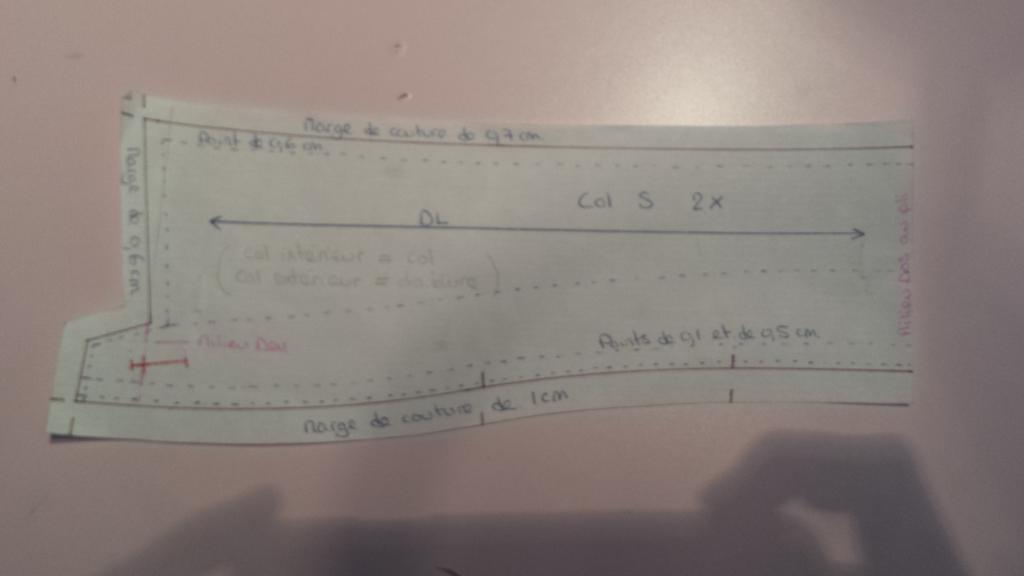 Marge de couture de 0,7 cm
Point de 0,6 cm
Marge de 0,6 cm
Col S 2x
DL
( col intérieur = col
col extérieur = doublure )
Milieu Dos au pli
Milieu
Points de 0,1 et de 0,5 cm
Marge de couture de 1 cm